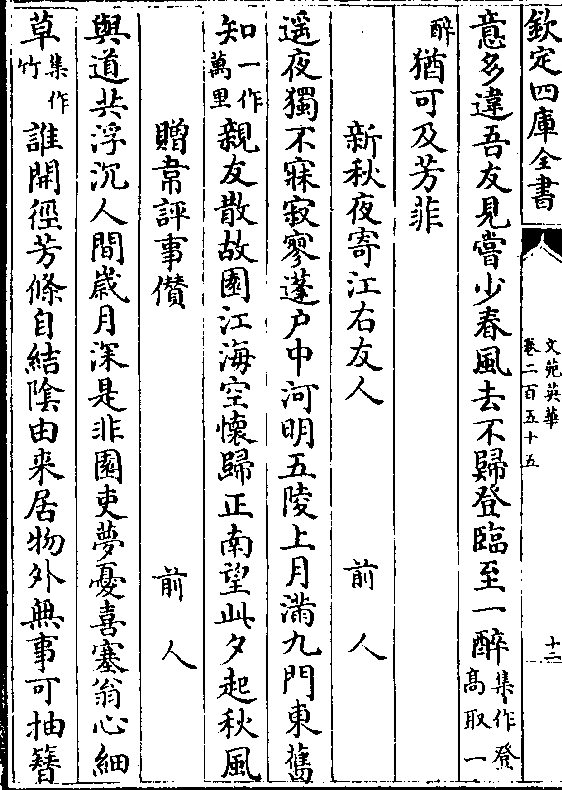 欽定四庫全書
文苑英華
卷二百五十五
十二
意多違吾友見嘗少春風去不歸登臨至一醉集作登高取一
醉猶可及芳菲
新秋夜寄江右友人 前人
遥夜獨不寐寂寥蓬户中河明五陵上月滿九門東舊
知一作萬里親友散故園江海空懷歸正南望此夕起秋風
贈韋評事儧 前人
與道共浮沉人間歲月深是非園吏夢憂喜塞翁心細
草集作竹誰開徑芳條自結陰由来居物外無事可抽簪